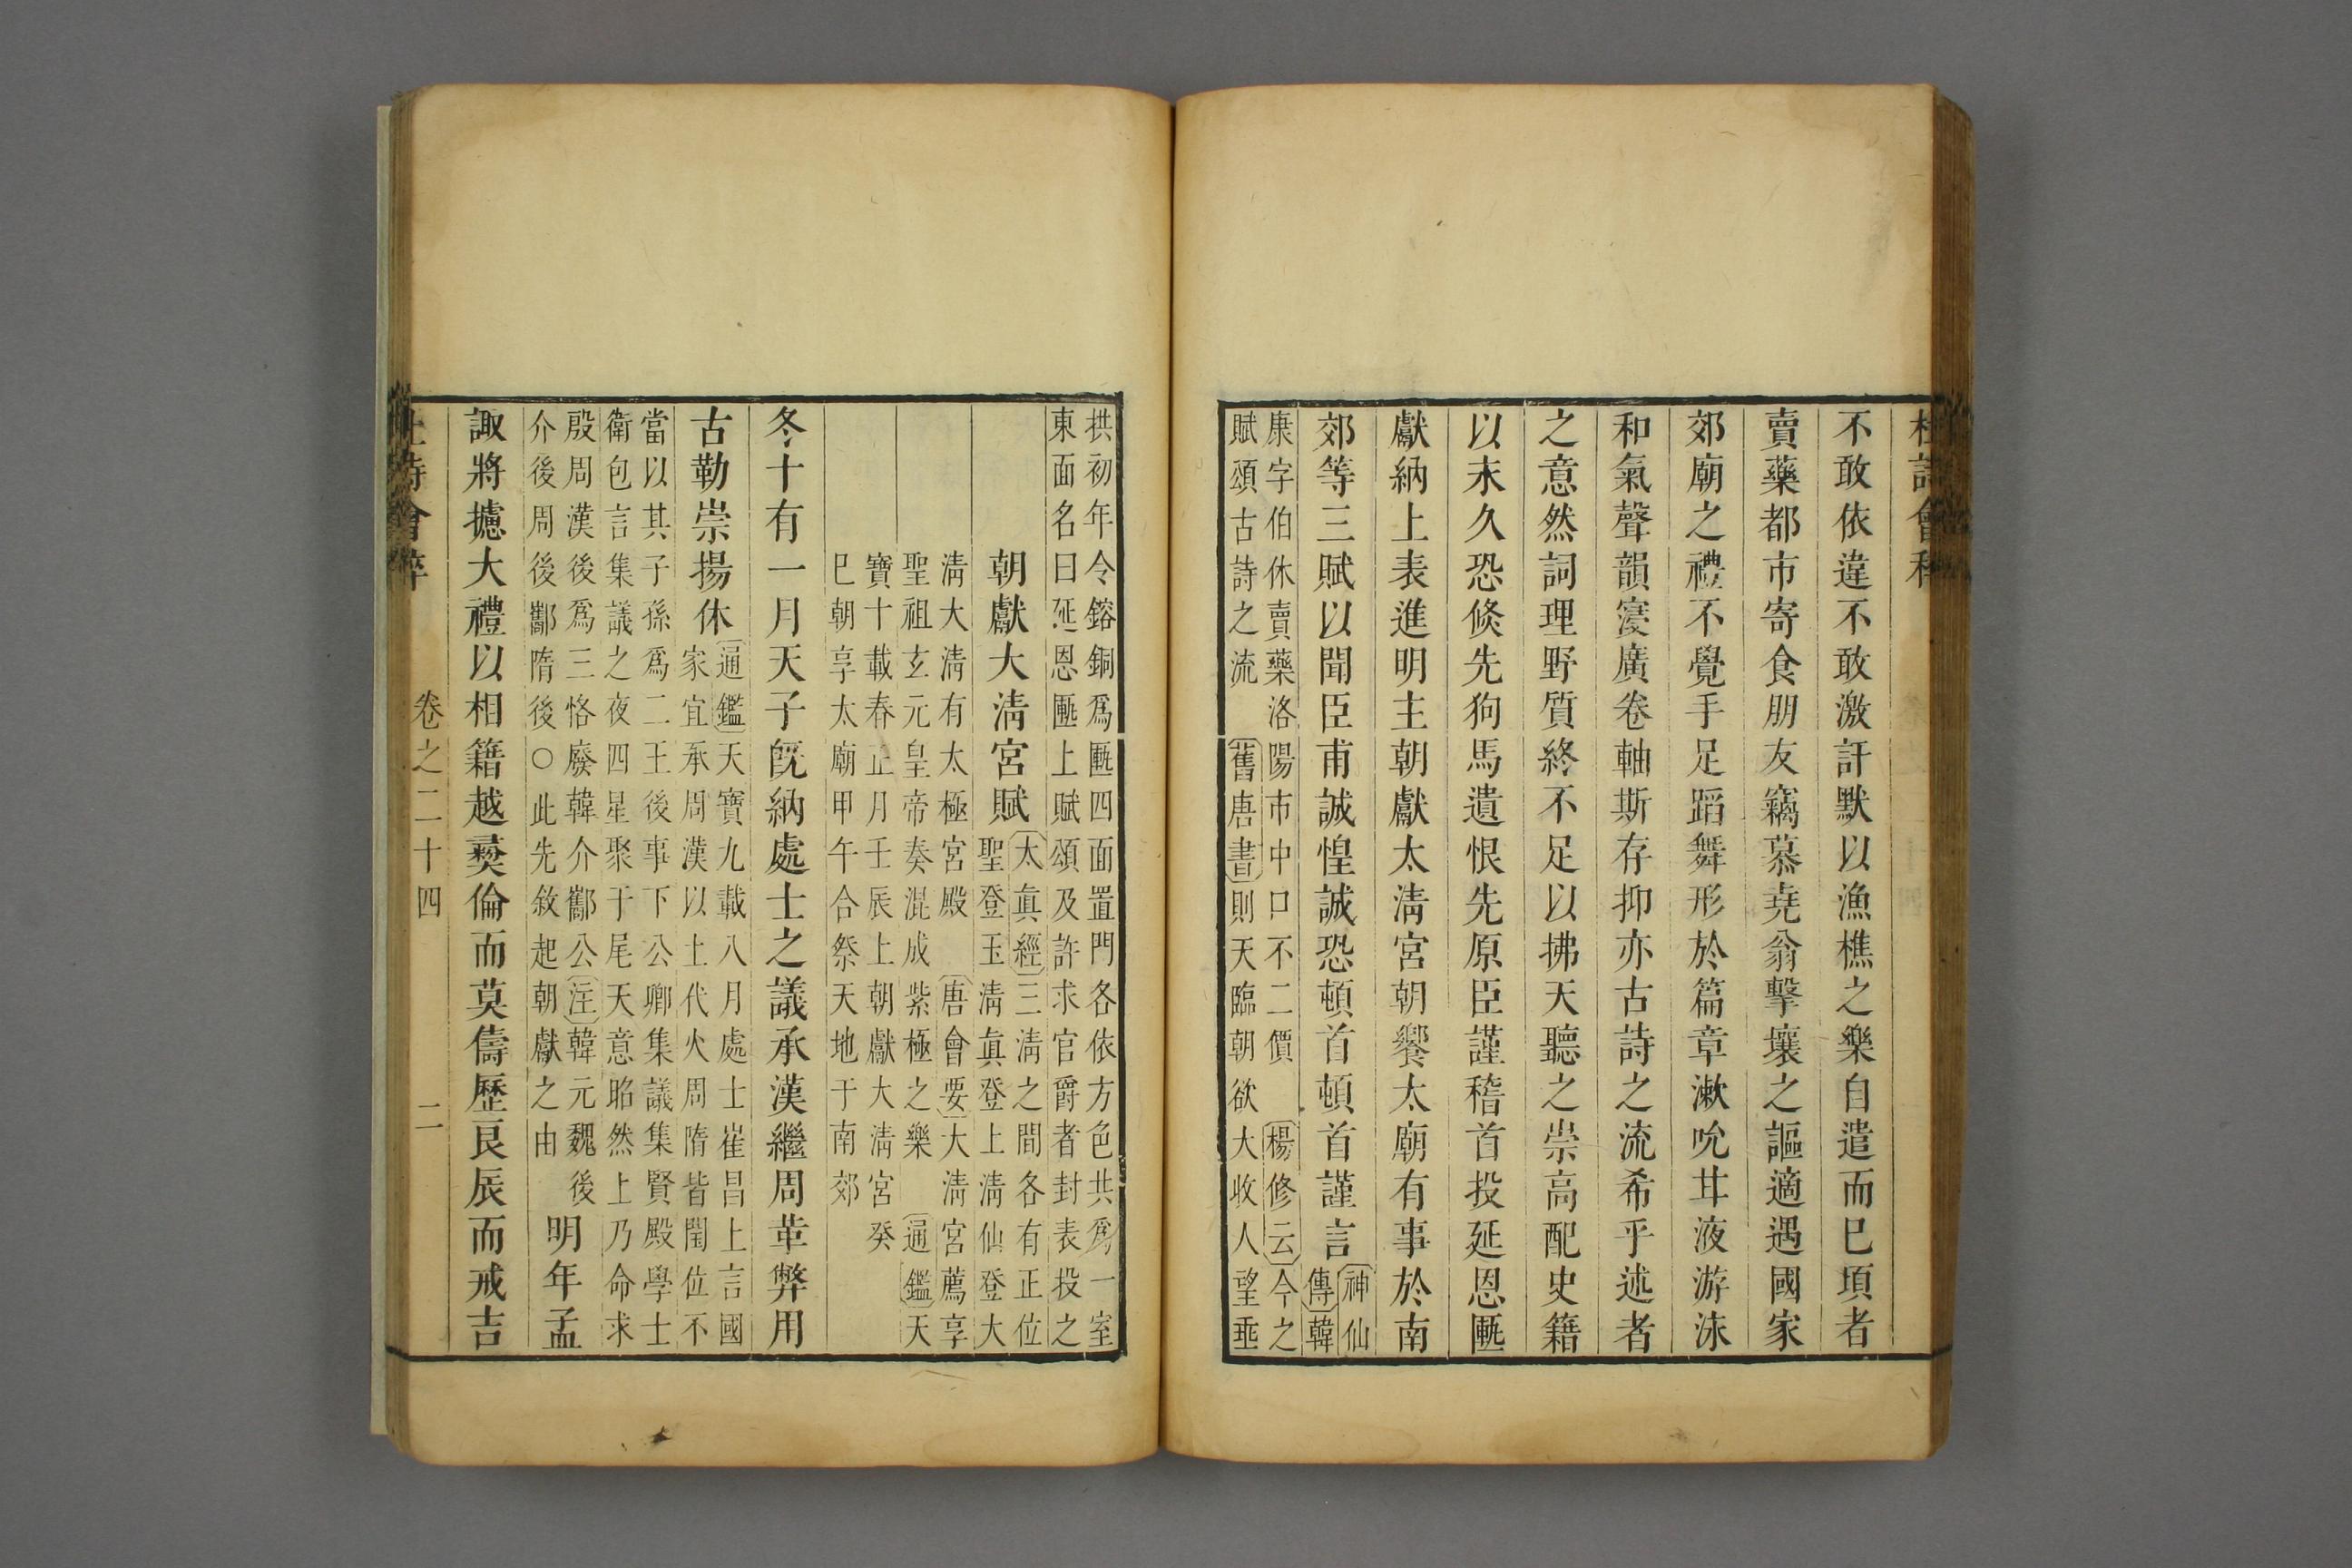 杜詩會稡
不敢依違不敢激訐默以漁樵之樂自遣而已項者
賣藥都市寄食朋友竊慕堯翁擊壤之謳適遇國家
郊廟之禮不覺手足蹈舞形於篇章漱吮甘液游泳
和氣聲韻寖廣卷軸斯存抑亦古詩之流希乎述者
之意然詞理野質終不足以拂天聽之崇高配史籍
以永久恐倐先狗馬遺恨先原臣謹稽首投延恩匭
獻納上表進明主朝獻太淸宮朝饗太廟有事於南
郊等三賦以聞臣甫誠惶誠恐頓首頓首謹言
神仙
傳韓
康字伯休賣藥洛陽市中口不二價 楊修云今之
賦頌古詩之流 舊唐書則天臨朝欲大收人望垂
拱初年令鎔銅爲匭四面置門各依方色共爲一室
東面名曰延恩匭上賦頌及許求官爵者封表投之
朝獻大淸宮賦
太眞經三淸之間各有正位
聖登玉淸眞登上淸仙登大
淸大淸有太極宮殿 唐會要大淸宮薦享
聖祖玄元皇帝奏混成紫極之樂 通鑑天
寶十載春正月壬辰上朝獻大淸宮癸
巳朝享太廟甲午合祭天地于南郊
冬十有一月天子旣納處士之議承漢繼周革弊用
古勒崇揚休
通鑑天寶九載八月處士崔昌上言國
家宜承周漢以土代火周隋皆閏位不
當以其子孫爲二王後事下公卿集議集賢殿學士
衛包言集議之夜四星聚于尾天意昭然上乃命求
殷周漢後爲三恪廢韓介酅公注韓元魏後
介後周後酅隋後○此先敘起朝獻之由
明年孟
諏將攄大禮以相籍越彛倫而莫儔歷良辰而戒吉
杜詩會稡 卷之二十四 二